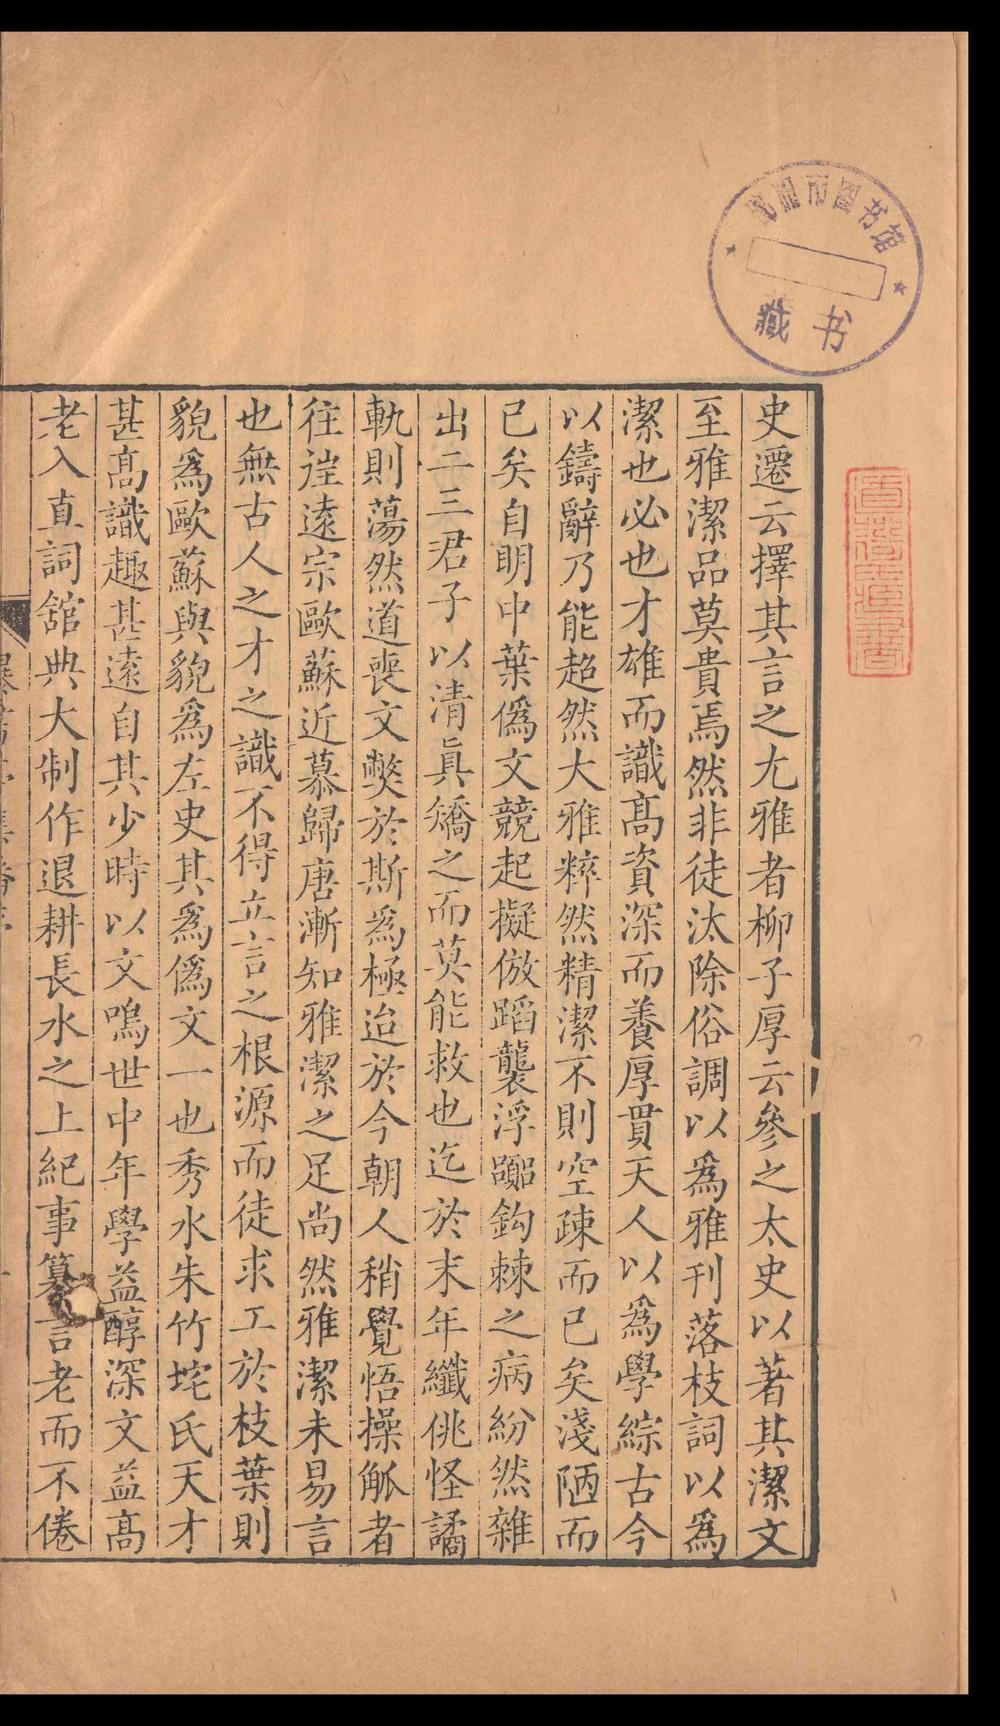 史遷云擇其言之尤雅者柳子厚云參之太史以著其潔文
至雅潔品莫貴焉然非徒汰除俗調以為雅刊落枝詞以為
潔也必也才雄而識高資深而養厚貫天人以為學綜古今
以鑄辭乃能超然大雅粹然精潔不則空疎而已矣淺陋而
已矣自明中葉偽文競起擬倣蹈襲浮嚻鈎棘之病紛然雜
出二三君子以清真矯之而莫能救也迄於末年纖佻怪譎
軌則蕩然道喪文獘於斯為極迨於今朝人稍覺悟操觚者
往往遠宗歐蘇近慕歸唐漸知雅潔之足尚然雅潔未易言
也無古人之才之識不得立言之根源而徒求工於枝葉則
貌為歐蘇與貌為左史其為偽文一也秀水朱竹垞氏天才
甚高識趣甚遠自其少時以文鳴世中年學益醇深文益高
老入直詞舘典大制作退耕長水之上紀事纂言老而不倦
市圖书馆
藏书